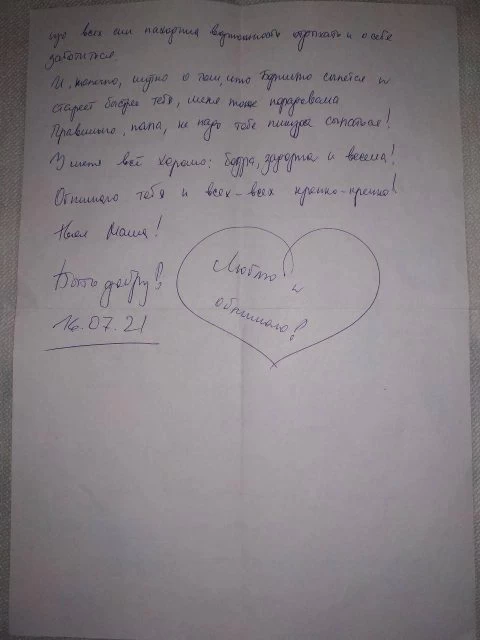 изо всех сил находила возможность отдыхать и о себе
заботиться.
И, конечно, шутка о том, что сыпется и
стареет быстрее тебя, меня тоже порадовала
Правильно, папа, не надо тебе сыпаться!
У меня всё хорошо: бодра, задорна и весела!
Обнимаю тебя и всех-всех крепко-крепко!
Маша!
Быть добру!
16.07.21
Люблю и
обнимаю!